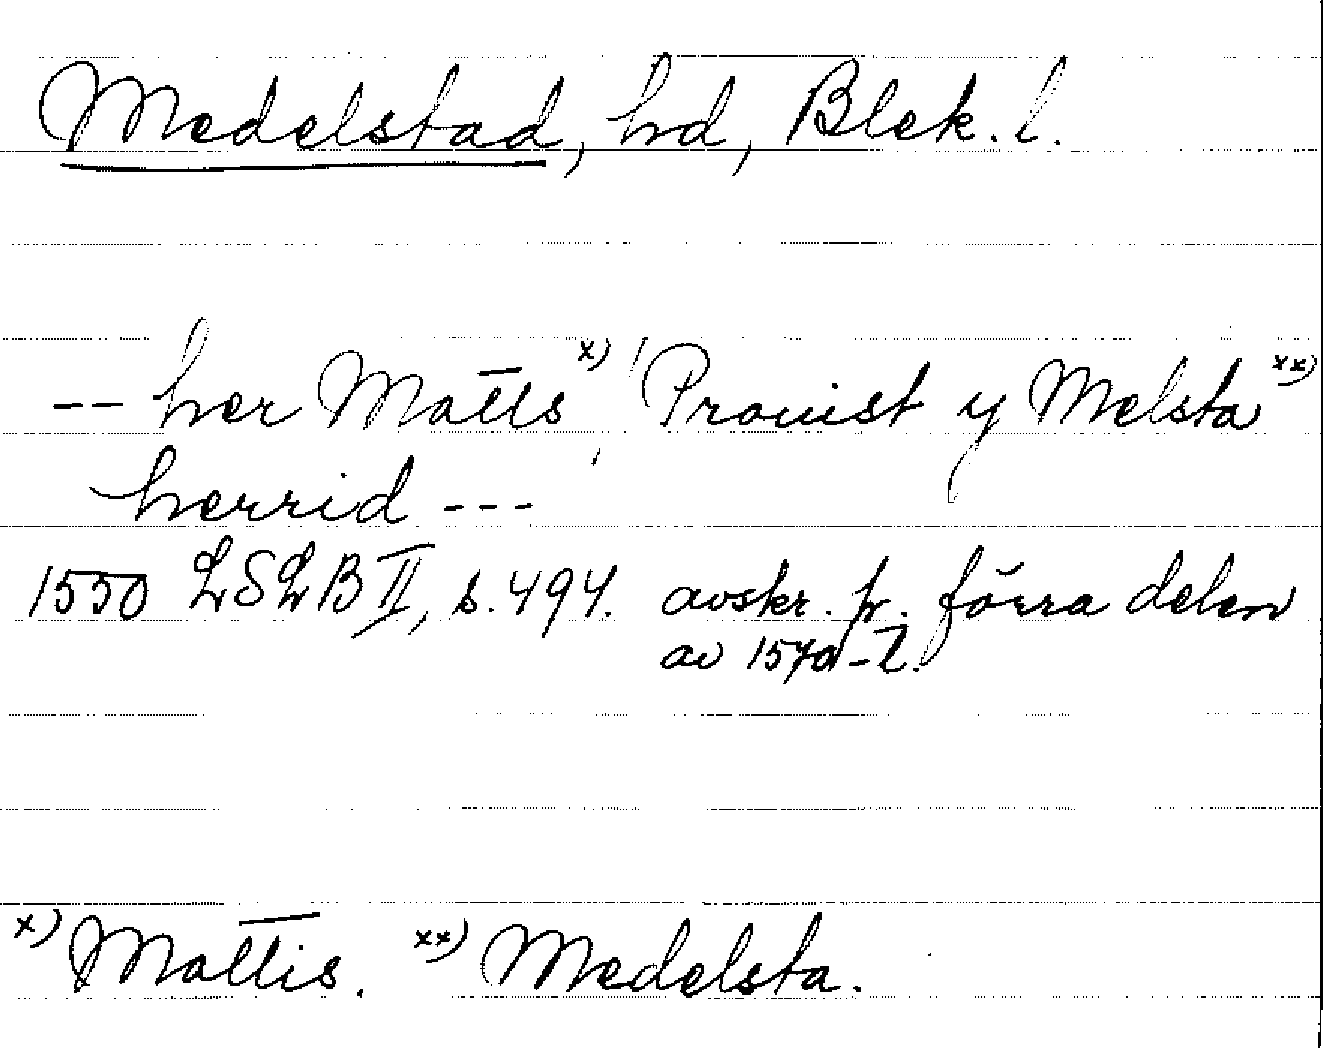 Medelstad, hd, Blek. l.
-- her Matts x) Prouist y Melsta xx)
herrid ---
1550 LSLB II, s. 494. avskr. fr. förra delen
av 1570-t.
x) Mattis. xx) Medelsta.